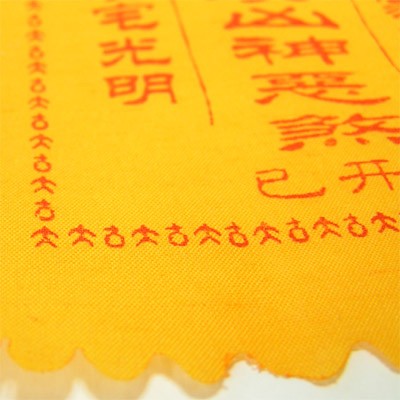 凶神惡煞
宅光明
已开